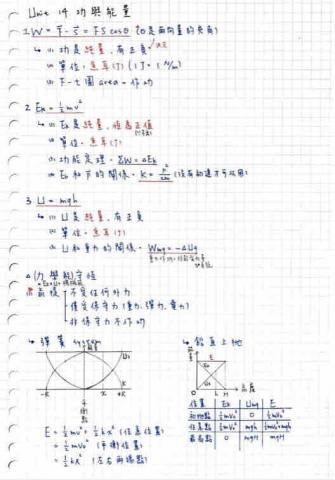 Unit 14 功與能量
1. W = F · S = FS cosθ (θ是兩向量的夾角)
(1) 功是純量,有正負
(2) 單位:焦耳(J) (1J = 1 N/m)
(3) F-t 圖 area = 作功
2. Ek = ½mv²
(1) Ek是純量,恆為正值
(2) 單位:焦耳(J)
(3) 功能定理:ΣW = ΔEk
(4) Ek和P的關係:K = P²/2m
3. U = mgh
(1) U是純量,有正負
(2) 單位:焦耳(J)
(3) U和重力的關係:Wmg = -ΔUg
△(力學能)守恆
前提 不受任何外力
僅受保守力(重力,彈力,電力)
非保守力不作功
彈簧 system
鉛直上拋
U
K
-R
x
+R
平衡點
E
h H
高度
E = ½mv² + ½kx² (任意位置)
= ½mv₀² (平衡位置)
= ½kR² (左右兩端點)
位置 Ek Umg E
初始點 ½mv₀² 0 ½mv₀²
任意點 ½mv² mgh ½mv²+mgh
最高點 0 mgH mgH